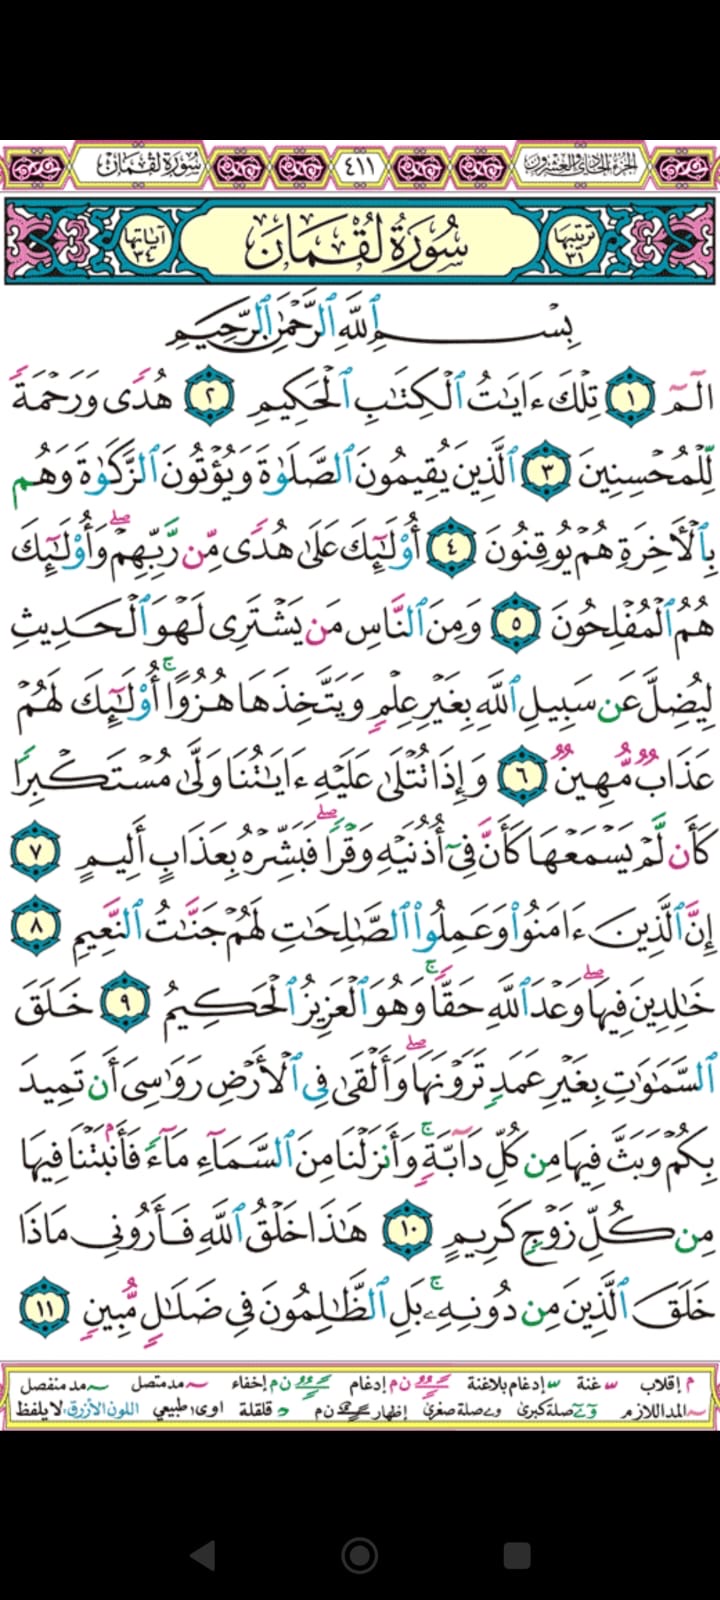 الجزء الحادي والعشرون
٤١١
سُورَةُ لُقْمَان
ترتيبها ٣١
سُورَةُ لُقْمَانَ
آياتها ٣٤
بِسْمِ ٱللَّهِ ٱلرَّحْمَٰنِ ٱلرَّحِيمِ
الٓمٓ ١ تِلْكَ ءَايَٰتُ ٱلْكِتَٰبِ ٱلْحَكِيمِ ٢ هُدًى وَرَحْمَةً
لِّلْمُحْسِنِينَ ٣ ٱلَّذِينَ يُقِيمُونَ ٱلصَّلَوٰةَ وَيُؤْتُونَ ٱلزَّكَوٰةَ وَهُم
بِٱلْأَخِرَةِ هُمْ يُوقِنُونَ ٤ أُو۟لَٰٓئِكَ عَلَىٰ هُدًى مِّن رَّبِّهِمْ ۖ وَأُو۟لَٰٓئِكَ
هُمُ ٱلْمُفْلِحُونَ ٥ وَمِنَ ٱلنَّاسِ مَن يَشْتَرِى لَهْوَ ٱلْحَدِيثِ
لِيُضِلَّ عَن سَبِيلِ ٱللَّهِ بِغَيْرِ عِلْمٍ وَيَتَّخِذَهَا هُزُوًا ۚ أُو۟لَٰٓئِكَ لَهُمْ
عَذَابٌ مُّهِينٌ ٦ وَإِذَا تُتْلَىٰ عَلَيْهِ ءَايَٰتُنَا وَلَّىٰ مُسْتَكْبِرًا
كَأَن لَّمْ يَسْمَعْهَا كَأَنَّ فِىٓ أُذُنَيْهِ وَقْرًا ۖ فَبَشِّرْهُ بِعَذَابٍ أَلِيمٍ ٧
إِنَّ ٱلَّذِينَ ءَامَنُوا۟ وَعَمِلُوا۟ ٱلصَّٰلِحَٰتِ لَهُمْ جَنَّٰتُ ٱلنَّعِيمِ ٨
خَٰلِدِينَ فِيهَا ۖ وَعْدَ ٱللَّهِ حَقًّا ۚ وَهُوَ ٱلْعَزِيزُ ٱلْحَكِيمُ ٩ خَلَقَ
ٱلسَّمَٰوَٰتِ بِغَيْرِ عَمَدٍ تَرَوْنَهَا ۖ وَأَلْقَىٰ فِى ٱلْأَرْضِ رَوَٰسِىَ أَن تَمِيدَ
بِكُمْ وَبَثَّ فِيهَا مِن كُلِّ دَآبَّةٍ ۚ وَأَنزَلْنَا مِنَ ٱلسَّمَآءِ مَآءً فَأَنۢبَتْنَا فِيهَا
مِن كُلِّ زَوْجٍ كَرِيمٍ ١٠ هَٰذَا خَلْقُ ٱللَّهِ فَأَرُونِى مَاذَا
خَلَقَ ٱلَّذِينَ مِن دُونِهِۦ ۚ بَلِ ٱلظَّٰلِمُونَ فِى ضَلَٰلٍ مُّبِينٍ ١١
م إقلاب غنة إدغام بلاغنة ن م إدغام ن م إخفاء مد متصل مد منفصل
المد اللازم صلة كبرى صلة صغرى إظهار ن م قلقلة اوى طبيعي اللون الأزرق: لا يلفظ